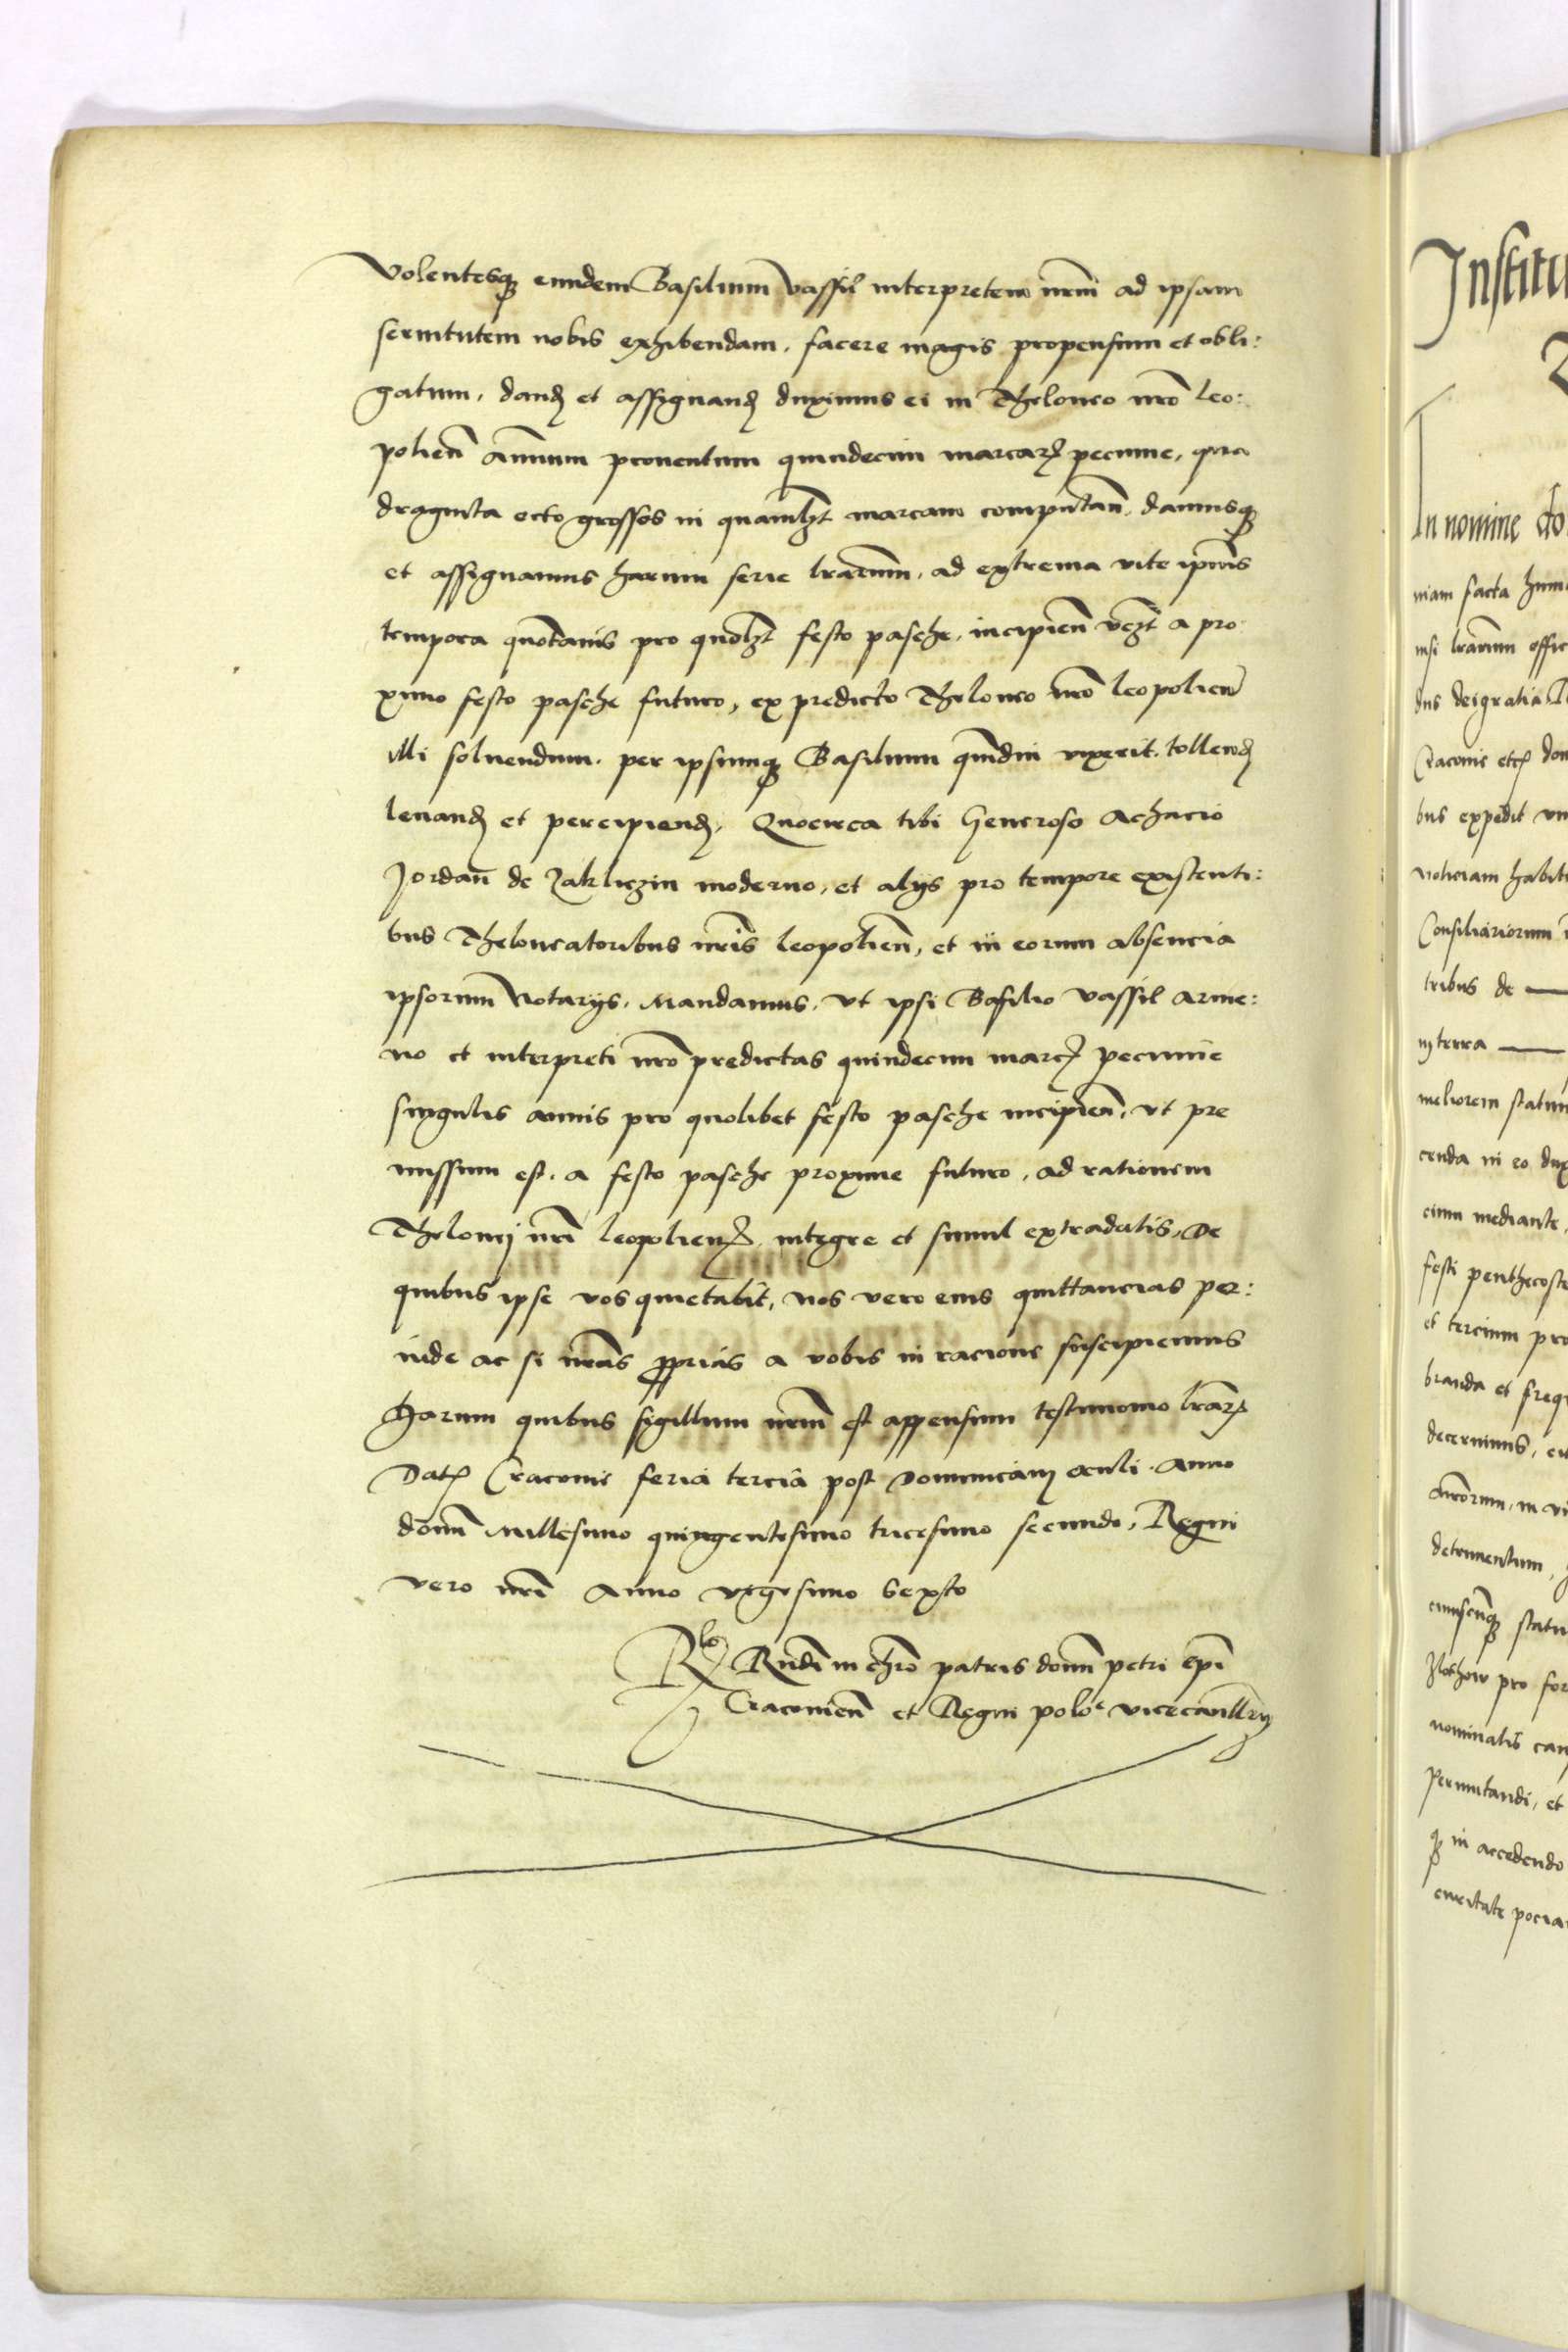 Volentesq3 eundem Basilium Vassil interpretem nrm̄ ad ipsam
seruitutem nobis exhibendam, facere magis propensum et obli:
gatum, dand et assignand duximus ei in Theloneo nrō Leo:
polien̄ Annuum prouentum quindecim marcar pecunie, qua
draginta octo grossos in quamlꝫt marcam computan̄, damusq3
et assignamus harum serie lrarum, ad extrema vite ipsius
tempora quotanis pro quolꝫt festo pasche, incipien̄ vcꝫt a pro
ximo festo pasche futuro, ex predicto Theloneo nrō leopolien̄
illi soluendum. per ipsumq3 Basilium qmdiu vixerit, tollend
leuand et percipiend, Quocirca tibi Generoso Achacio
Jordan̄ de Zakliczin moderno, et alijs pro tempore existenti:
bus Theloneatoribus nrīs leopolien̄, et in eorum absencia
ipsorum Notarijs, Mandamus, vt ipsi Basilio Vassil Arme:
no et interpreti nrō predictas quindecim marc pecunie
singulis annis pro quolibet festo pasche incipien̄, vt pre
missum est, a festo pasche proxime futuro, ad rationem
Thelonej nrī leopolien, integre et simul extradatis, De
quibus ipse vos quietabit, nos vero eius quittancias per:
inde ac si nrās proprias a vobis in racione suscipiemus
Harum quibus sigillum nrm̄ est appensum testimonio lrār
Dat Cracouie feria tercia post Dominicam oculi. Anno
domī Millesimo quingentesimo tricesimo secundo, Regni
vero nrī Anno vigesimo Sexto
Rlo Rndī in chrō patris domī petri epī
Cracouien̄ et Regni polo^e vicecancellrij
Institu
In nomine do
niam facta hum
nisi lrarum offic
dns dei gratia
Cracouie etc don
bus expedit vn
noticiam habit
Consiliariorum
tribus de —
in terra —
meliorem statum
cenda in eo dux
cimu mediante,
festi penthecoste
et tercium pro
branda et freq
decernimus, et
Annorum, in vi
detrimentum,
eiusdemq3 statu
Zlochow pro for
nominatis cau
Permutandi, et
q3 in accedendo
ciuitate pocia